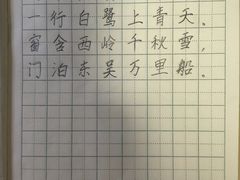 一行白鹭上青天。
窗含西岭千秋雪，
门泊东吴万里船。